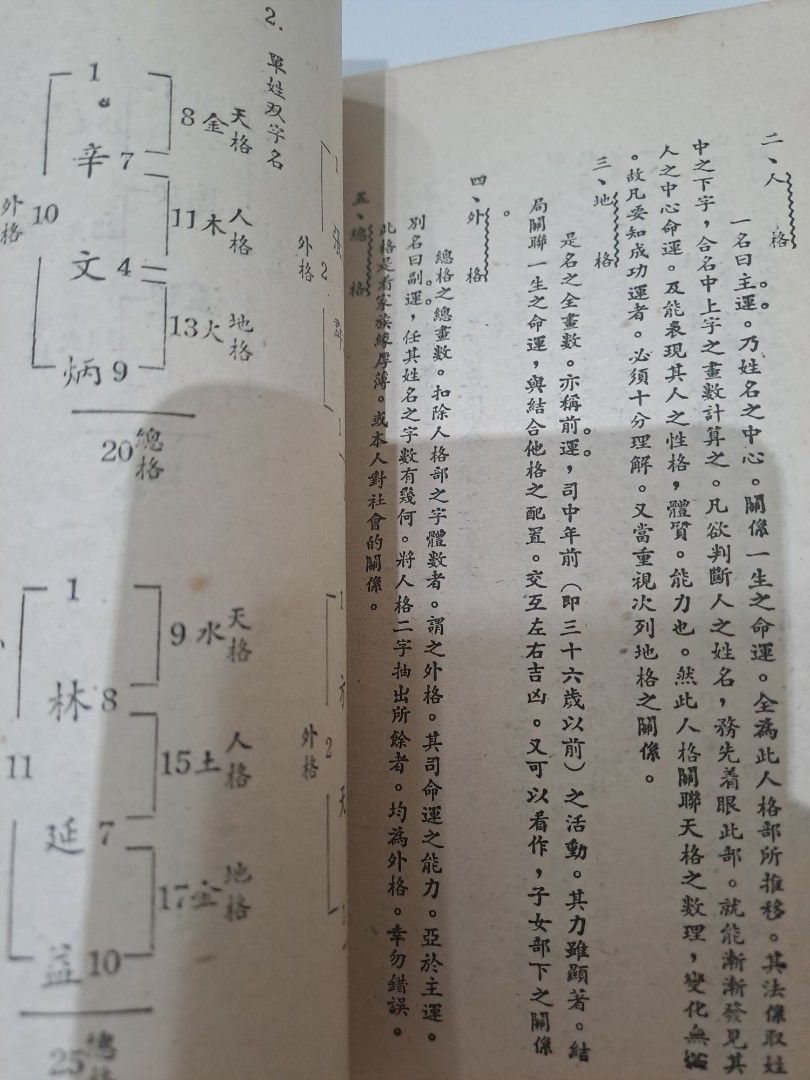 二、人格
一名曰主運。乃姓名之中心。關係一生之命運。全為此人格部所推移。其法係取姓
中之下字，合名中上字之畫數計算之。凡欲判斷人之姓名，務先着眼此部。就能漸漸發見其
人之中心命運。及能表現其人之性格，體質。能力也。然此人格關聯天格之數理，變化無
。故凡要知成功運者。必須十分理解。又當重視次列地格之關係。
三、地格
是名之全畫數。亦稱前運，司中年前（即三十六歲以前）之活動。其力雖顯著。結
局關聯一生之命運，與結合他格之配置。交互左右吉凶。又可以看作，子女部下之關係
。
四、外格
總格之總畫數。扣除人格部之字體數者。謂之外格。其司命運之能力。亞於主運。
別名曰副運，任其姓名之字數有幾何。將人格二字抽出所餘者。均為外格。幸勿錯誤。
五、總格
此格是看家族緣厚薄。或本人對社會的關係。
1
張
外格 2
1
外格 2
2. 單姓双字名
1
辛 7
文 4
炳 9
8 金 天格
11 木 人格
13 火 地格
外格 10
20 總格
1
林 8
延 7
益 10
9 水 天格
15 土 人格
17 金 地格
11
25 總格